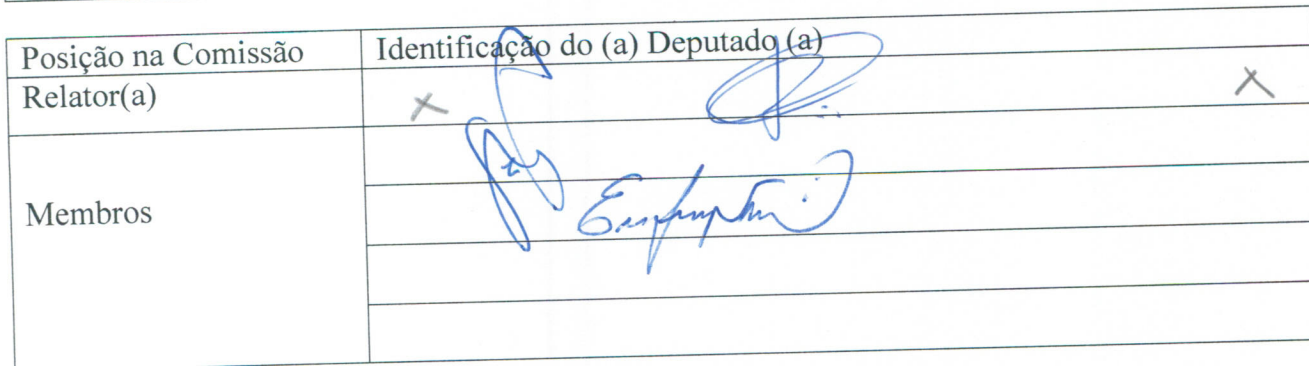 Posição na Comissão Identificação do (a) Deputado (a)
Relator(a) X X
Membros